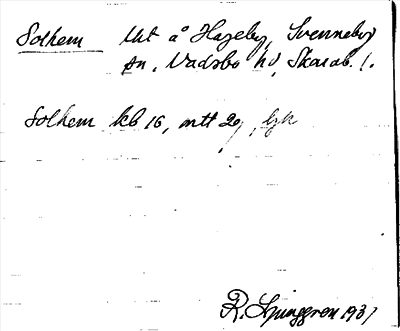 Solhem Uht å Hageby, Svenneby
sn, Vadsbo hd, Skarab. l.
Solhem kb 16, mtt 2
R. Ljunggren 1937